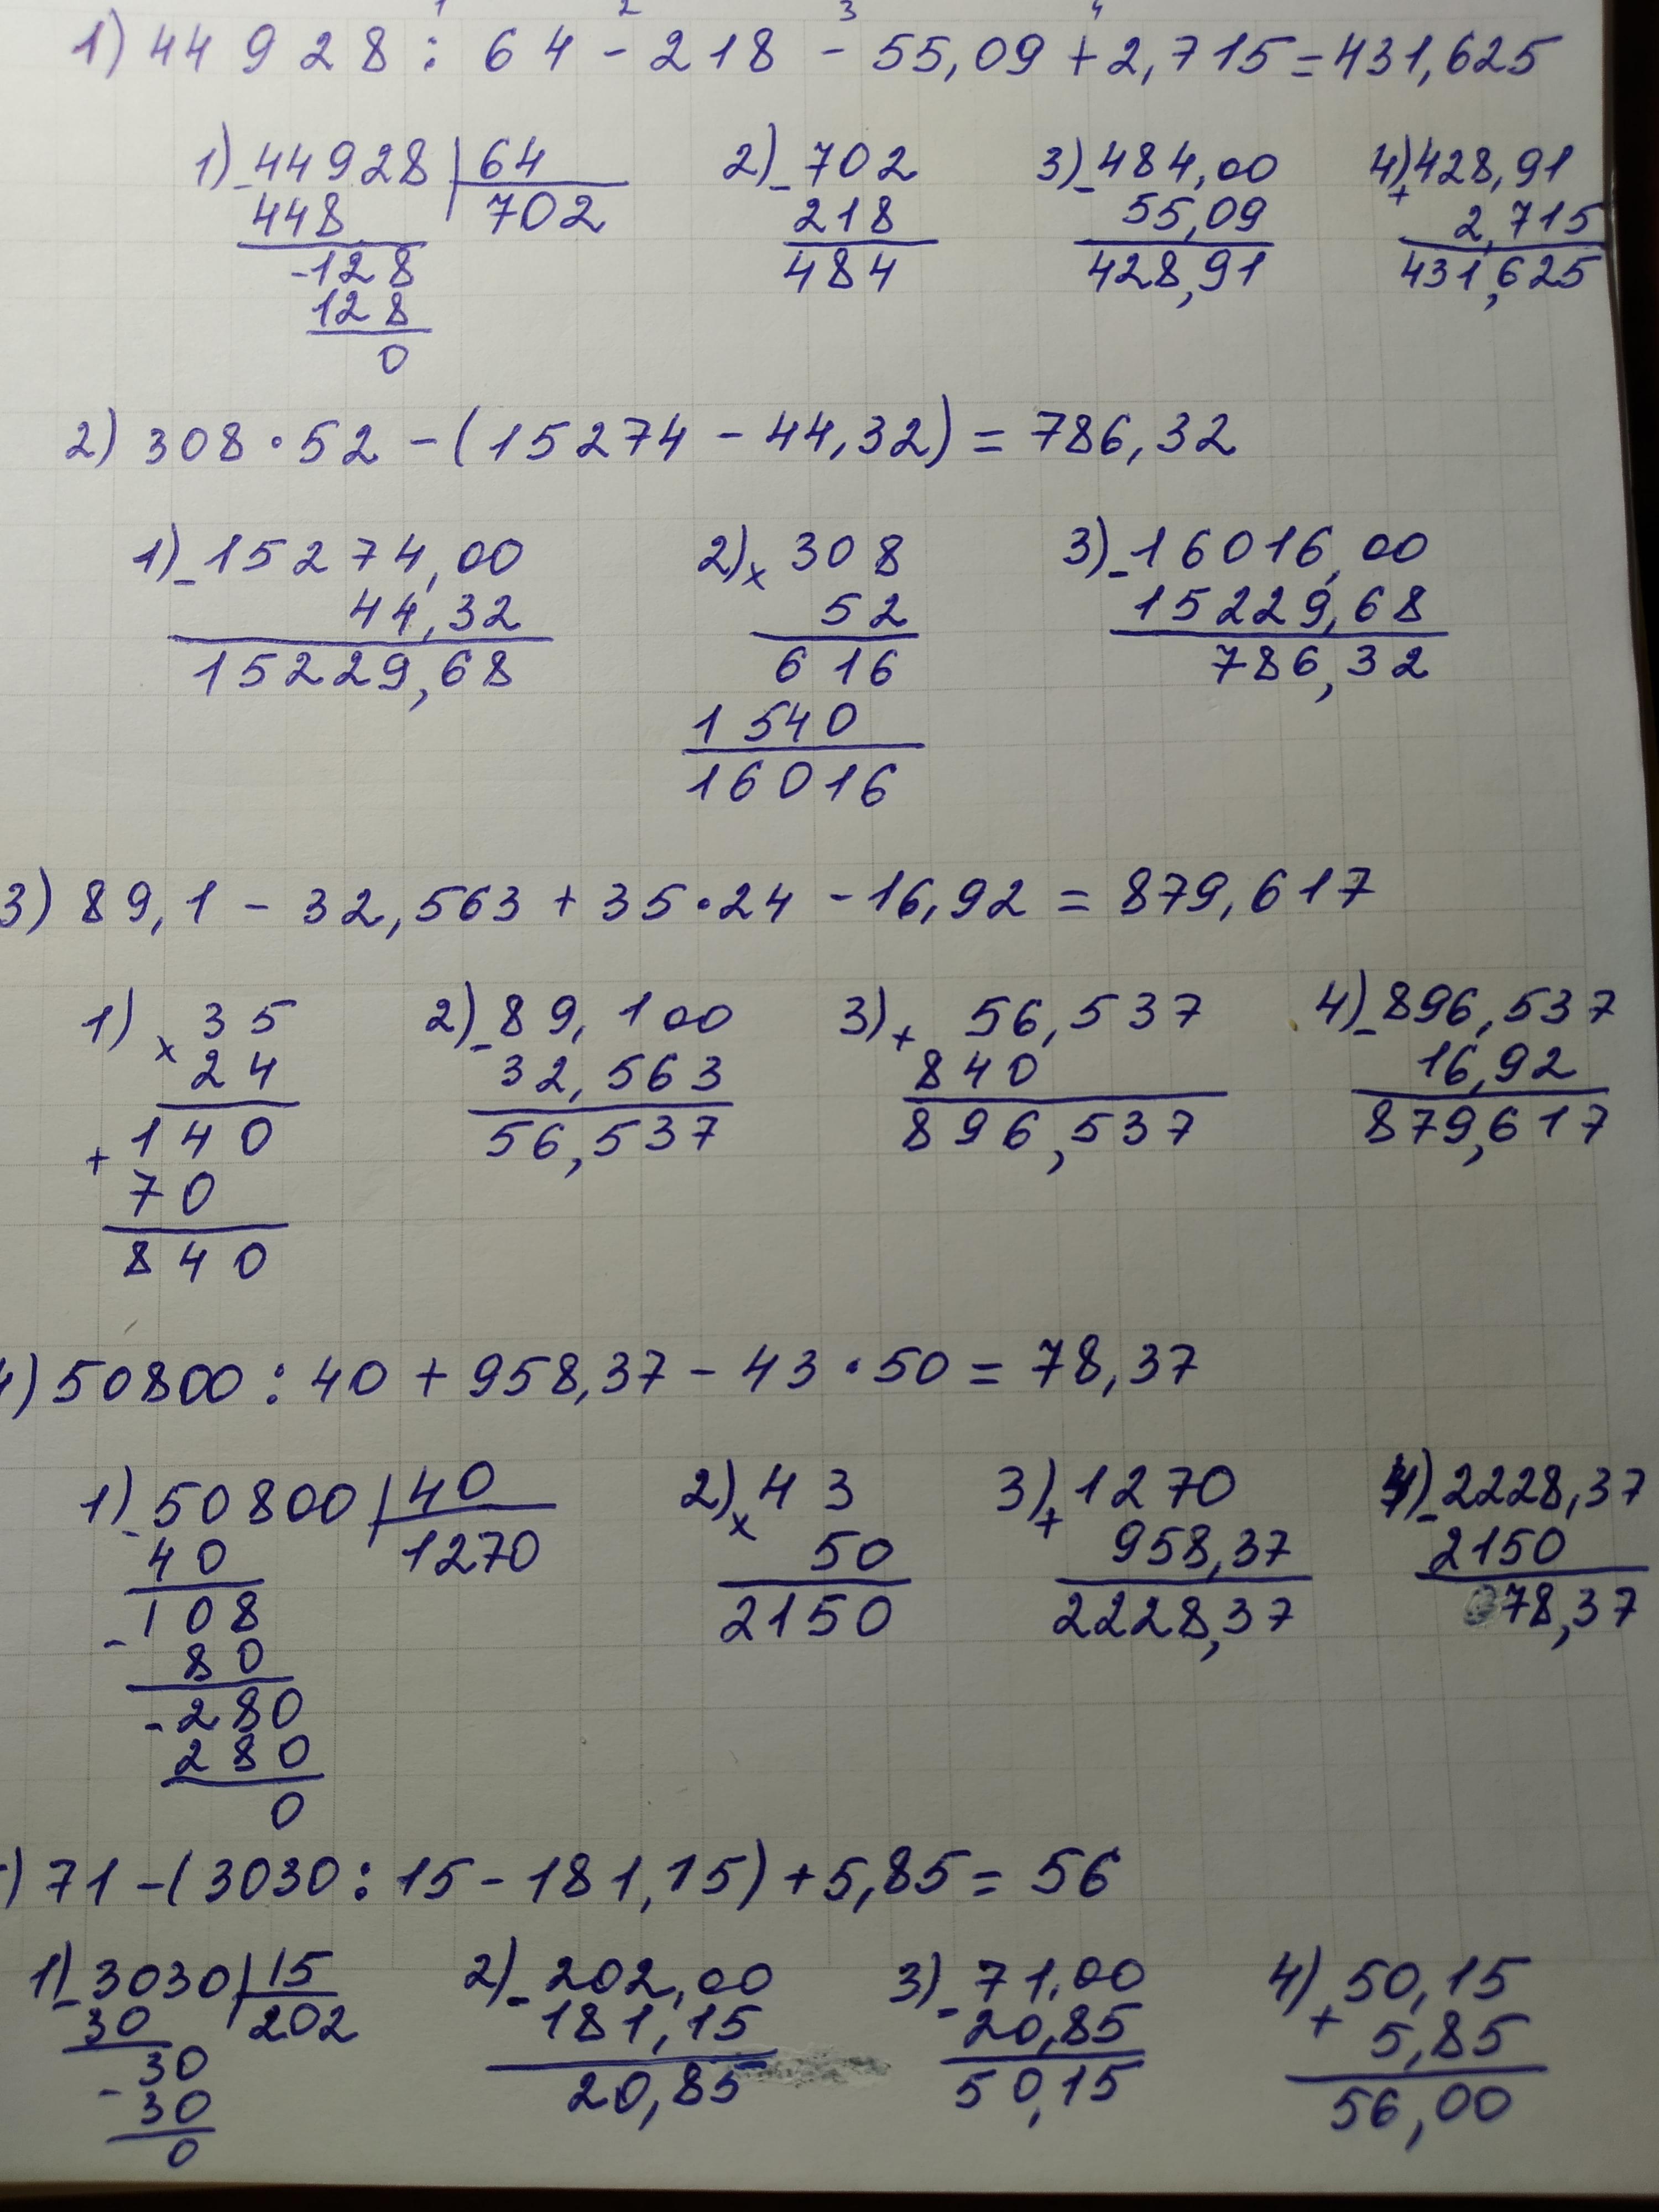 1 2 3 4
1) 44928 : 64 - 218 - 55,09 + 2,715 = 431,625
1) - 44928 | 64 2) - 702 3) - 484,00 4) + 428,91
448 702 218 55,09 2,715
- 128 484 428,91 431,625
128
0
2) 308 · 52 - (15274 - 44,32) = 786,32
1) - 15274,00 2) × 308 3) - 16016,00
44,32 52 15229,68
15229,68 616 786,32
1540
16016
3) 89,1 - 32,563 + 35 · 24 - 16,92 = 879,617
1) × 35 2) - 89,100 3) + 56,537 4) - 896,537
24 32,563 840 16,92
+ 140 56,537 896,537 879,617
70
840
) 50800 : 40 + 958,37 - 43 · 50 = 78,37
1) - 50800 | 40 2) × 43 3) + 1270 4) - 2228,37
40 1270 50 958,37 2150
- 108 2150 2228,37 78,37
80
- 280
280
0
) 71 - (3030 : 15 - 181,15) + 5,85 = 56
1) - 3030 | 15 2) - 202,00 3) - 71,00 4) + 50,15
30 202 181,15 20,85 5,85
- 30 20,85 50,15 56,00
30
0